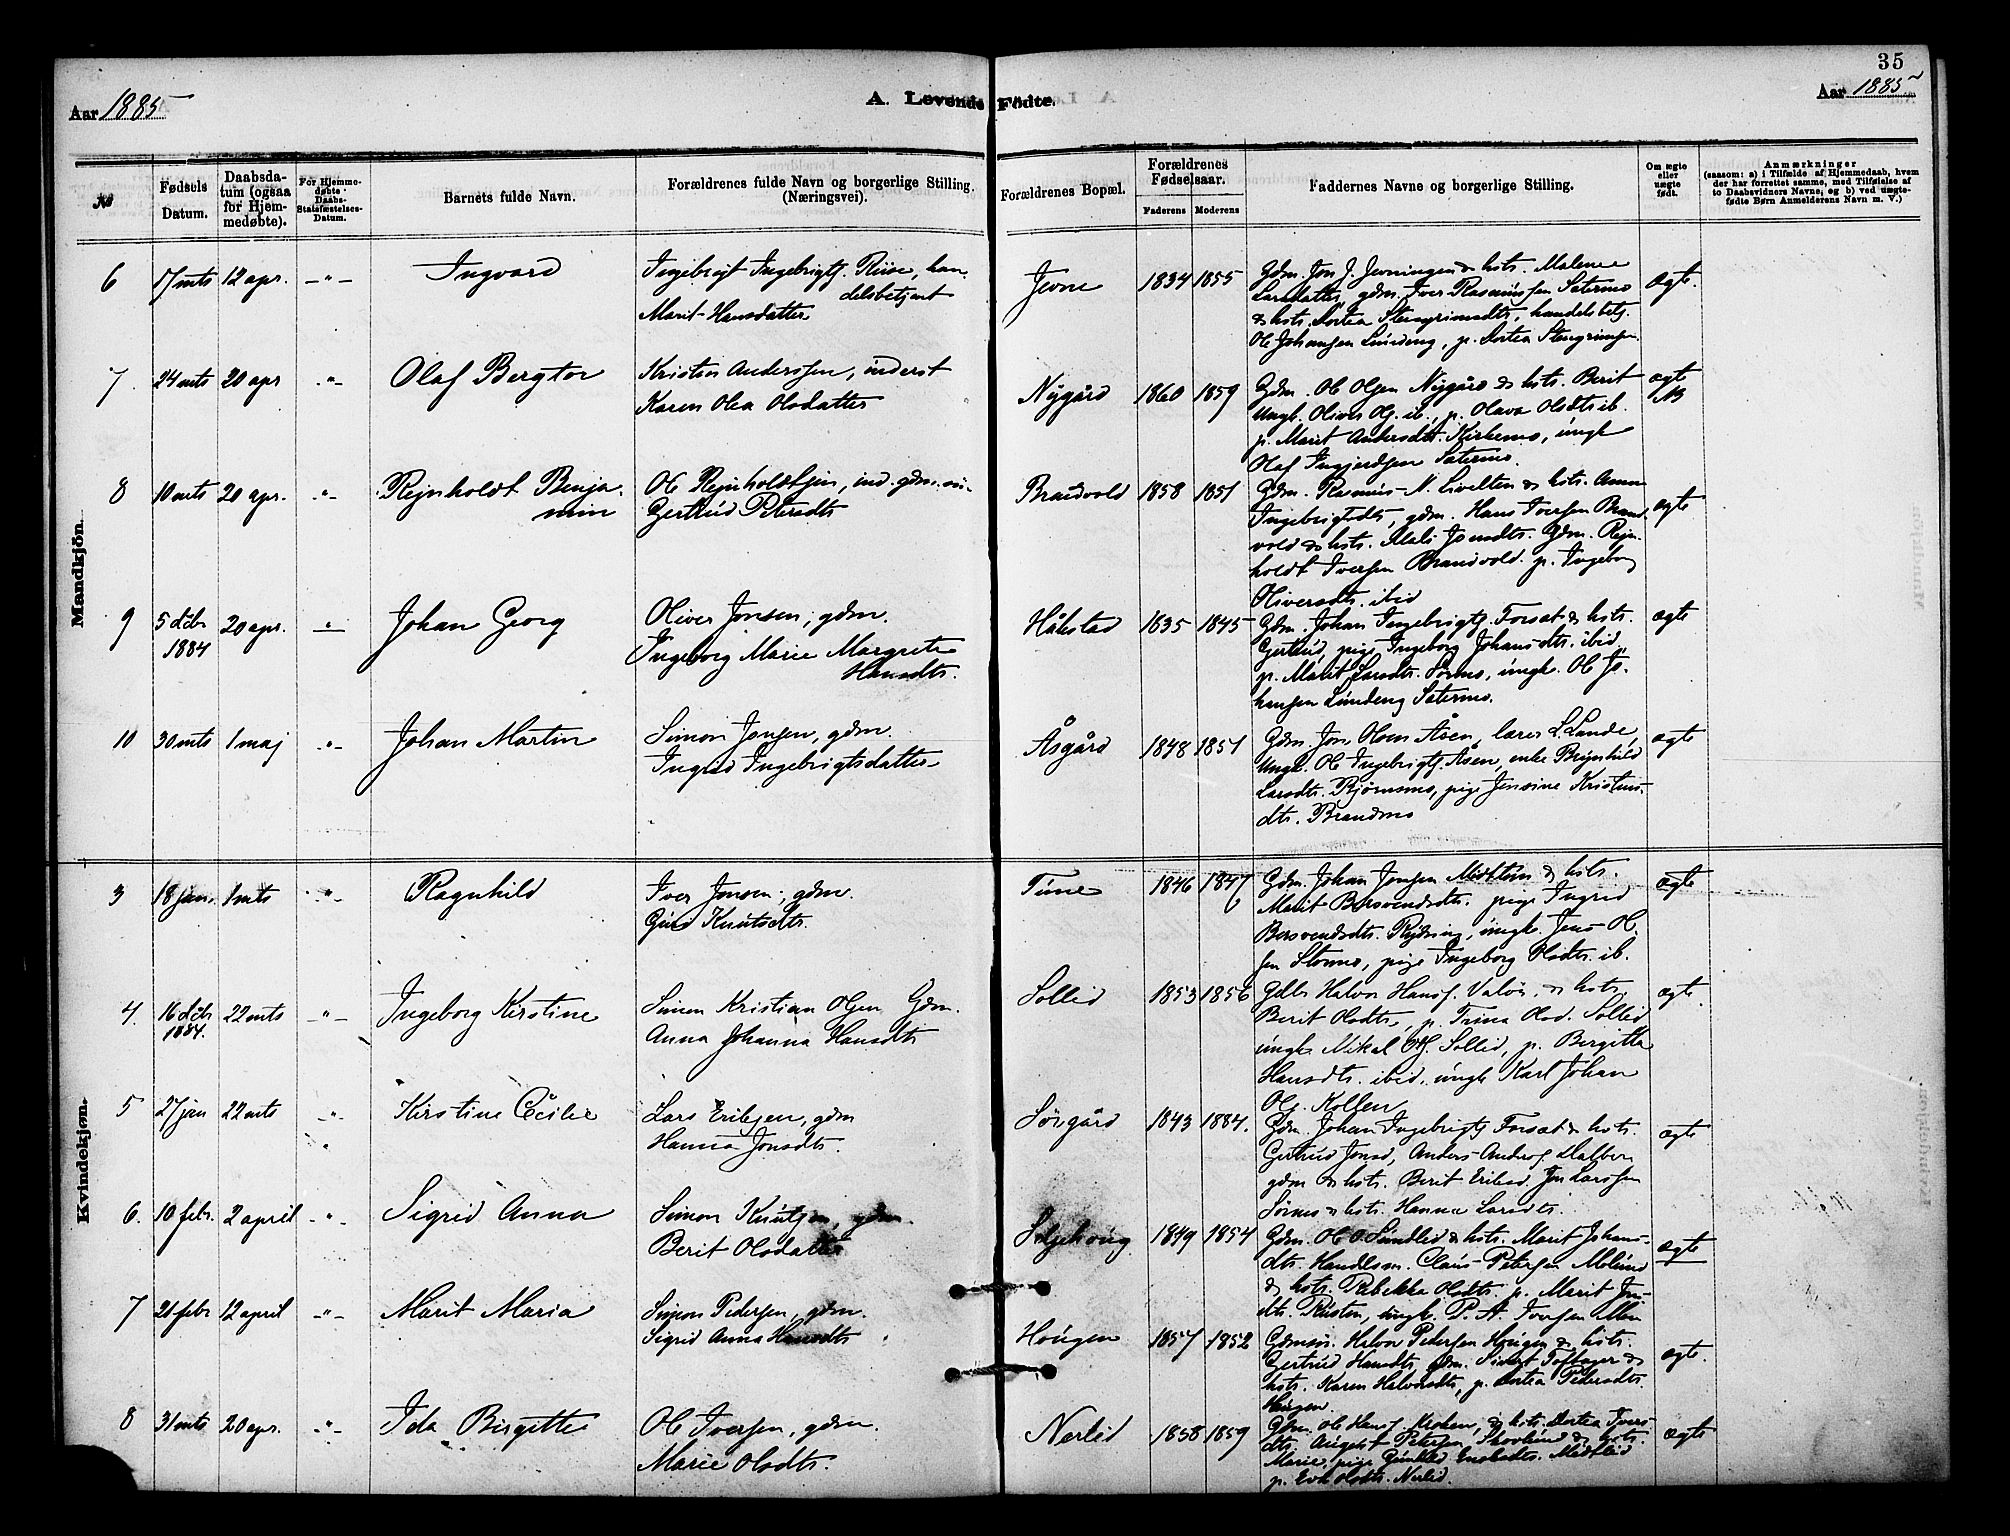 35
Aar 1885
A. Levende Födte.
Aar 1885
№
Fødsels Datum.
Daabsdatum (ogsaa for Hjemmedøbte).
For Hjemmedøbte Daabs-Stadfæstelses-Datum.
Barnets fulde Navn.
Forældrenes fulde Navn og borgerlige Stilling. (Næringsvei).
Forældrenes Bopæl.
Forældrenes Fødselsaar.
Faderens
Moderens
Faddernes Navne og borgerlige Stilling.
Om ægte eller uægte født.
Anmærkninger
(saasom: a) i Tilfælde af Hjemmedaab, hvem
der har forrettet samme, med Tilføielse af
to Daabsvidners Navne; og b) ved uægte-
fødte Børn Anmelderens Navn m. V.)
Mandkjön.
6 17 mts 12 apr. -"- Ingvard
Ingebrigt Ingebrigtf. Riise, han-
delsbetjent
Marit Hansdatter
Jevne 1834 1855
Gdm. Jon J. Jevningen & hst. Malene
Larsdatter, gdm. Iver Rasmussen Satermo
& hst. Dortea Stengrimsdtr, handelsbetj.
Ole Johansen Lundeng, p. Dortea Stengrimsen
ægte.
7. 24 mts 20 apr -"- Olaf Bergtor
Kristen Anderssen, inderst
Karen Olea Olsdatter
Nygård 1860 1859
Gdm. Ole Olsen Nygård & hst. Berit
Ungk. Oliver Ols. ib., p. Olava Olsdtr ib.
p. Marit Andersdtr. Kirkemo, ungk
Olaf Ingjerdsen Satermo.
ægte
8 10 mts 20 apr. -"- Rejnholdt Benja-
min
Ole Rejnholdtsen, ind. gdm.
Gertrud Petersdtr
Brandvold 1858 1851
Gdm. Rasmus N. Livelten & hst. Anne
Ingebrigtsdtr, gdm. Hans Iversen Brand-
vold & hst. Mali Jonsdtr. Gdm. Rejn-
holdt Iversen Brandvold. p. Ingeborg
Oliversdtr. ibid
ægte
9 5 dcbr 1884 20 apr. -"- Johan Georg
Oliver Jonsen, gdm.
Ingeborg Marie Margrete
Hansdtr.
Håkstad 1835 1845
Gdm. Johan Ingebrigtf. Forsat & hst.
Gertrud, pige Ingeborg Johansdtr. ibid,
p. Marit Larsdtr. Sørmo, ungk. Ole Jo-
hansen Lundeng Satermo.
ægte
10 30 mts 1 maj -"- Johan Martin
Simon Jonsen, gdm.
Ingrid Ingebrigtsdatter
Åsgård 1848 1851
Gdm. Jon Olsen Åsen, lærer L Lande,
Ungk. Ole Ingebrigtf. Åsen, enke Brynhild
Larsdtr. Bjørnsmo, pige Jensine Kristens-
dtr. Brandmo
ægte
Kvindekjøn.
3 18 jan. 1 mts -"- Ragnhild
Iver Jonsen, gdm.
Guri Knutsdtr.
Tune 1846 1847
Gdm. Johan Jonsen Midtlun & hst.
Marit Bersvendsdtr. pige Ingrid
Bersvendsdtr. Rydning, ungk. Jens Ol-
sen Stormo, pige Ingeborg Olsdtr. ib.
ægte
4. 16 dcbr 1884. 22 mts -"- Ingeborg Kirstine
Simon Kristian Olsen Gdm.
Anna Johanna Hansdtr
Sollid 1853 1856
Gdbr Halvor Hansf. Valøs, & hst.
Berit Olsdtr, p. Trina Olsd. Sollid
ungk Nikal Olsf. Sollid, p. Bergitta
Hansdtr. ibid. ungk Karl Johan
Ols. Kolsen
ægte
5 27 jan 22 mts -"- Kirstine Cecilie
Lars Eriksen, gdm
Hanna Jonsdtr.
Sørgård 1843 1884.
Gdm. Johan Ingebrigtf Forsat & hst.
Gertrud Jonsd, Anders Andersf. Dalber
gdm & hst. Berit Eriksd. Jon Larssen
Sørmo & hst. Hanna Larsdtr.
ægte
6. 10 febr. 2 april -"- Sigrid Anna
Simon Knutsen, gdm.
Berit Olsdatter
1849 1854
Gdm. Ole O. Sundlid & hst. Marit Johans-
dtr. Handlsm. Claus Petersen Molund
& hst. Rebekka Olsdtr. p. Marit Jon
dtr. Rusten, ungk. P. A. Iversen Moen
ægte
7 21 febr 12 april -"- Marit Maria
Simon Pedersen, gdm.
Sigrid Anna Hansdtr
Hougen 1857 1852
Gdmsøn. Halvor Pedersen Hougen & hst.
Gertrud Hansdtr, gdm. Sivert Toftager &
hst. Karen Halvorsdtr, p. Dortea Pedersdtr.
Hougen
ægte.
8 31 mts 20 apr. -"- Ida Birgitte
Ole Iversen, gdm.
Marie Olsdtr.
Nerlid 1858 1859
Gdm. Ole Hansf. Kroken, & hst. Dortea Ivers-
dtr. August Petersen Skovlund & hst.
Marie, pige Gunhild Enoksdtr. Midtlid
p. Eva Olsdtr. Nerlid.
ægte